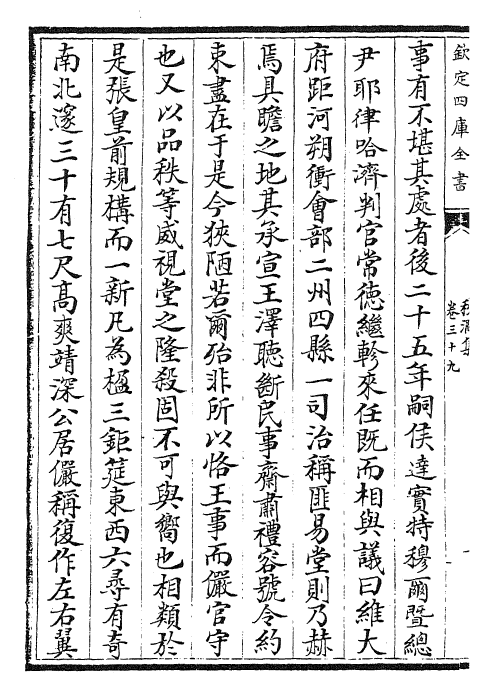 欽定四庫全書
卷三十九
事有不堪其處者後二十五年嗣侯達實特穆爾暨總
尹耶律哈濟判官常徳繼軫來任既而相與議曰維大
府距河朔衝會部二州四縣一司治稱匪易堂則乃赫
焉具瞻之地其承宣王澤聽斷民事齋肅禮容號令約
束盡在于是今狹陋若爾殆非所以恪王事而儼官守
也又以品秩等威視堂之隆殺固不可與嚮也相類於
是張皇前規構而一新凡為楹三鉅筵東西六尋有奇
南北邃三十有七尺高爽靖深公居儼稱復作左右翼